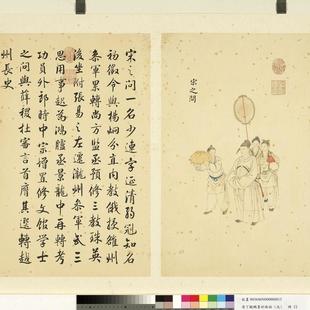 宋之問
宋之問一名少連字延清弱冠知名
初徵令與楊炯分直内教俄授雒州
叅軍累轉尚方監丞預修三教珠英
後坐附張易之左遷瀧州叅軍武三
思用事起為鴻臚丞景龍中再轉考
功員外郎時中宗增置修文館學士
之問與薛稷杜審言首膺其選轉越
州長史